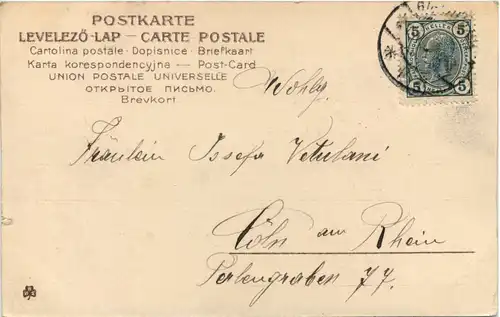 POSTKARTE
LEVELEZŐ-LAP — CARTE POSTALE
Cartolina postale · Dopisnice · Briefkaart
Karta korespondencyjna — Post-Card
UNION POSTALE UNIVERSELLE
ОТКРЫТОЕ ПИСЬМО.
Brevkort
5 HELLER 5
5 5
Wohlg.
Fräulein Josefa Vetulani
Cöln am Rhein
Perlengraben 77.